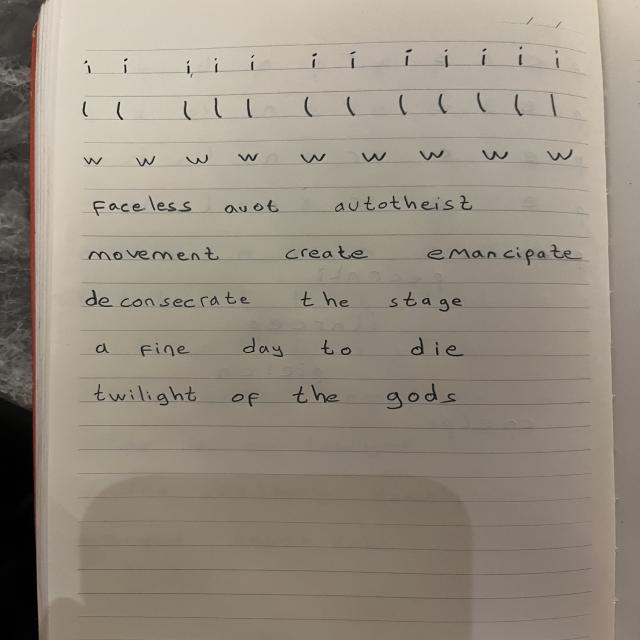 i i i i i i i i i i i i
l l l l l l l l l l l l
w w w w w w w w w
Faceless auot autotheist
movement create emancipate
deconsecrate the stage
a fine day to die
twilight of the gods